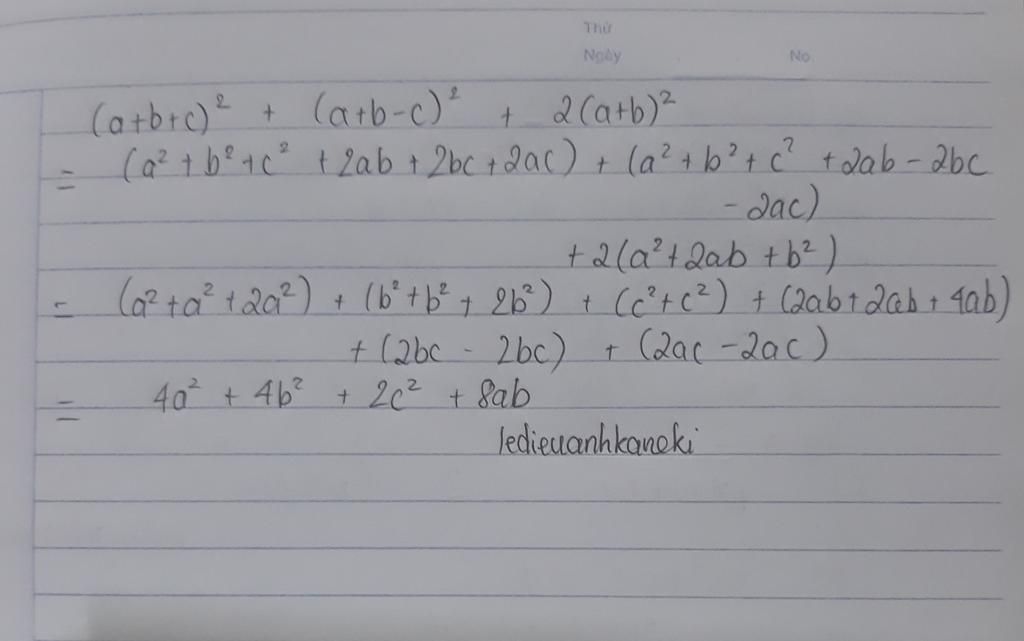 Thứ
Ngày No
(a+b+c)² + (a+b-c)² + 2(a+b)²
= (a² + b² + c² + 2ab + 2bc + 2ac) + (a² + b² + c² + 2ab - 2bc
- 2ac)
+ 2(a² + 2ab + b²)
= (a² + a² + 2a²) + (b² + b² + 2b²) + (c² + c²) + (2ab + 2ab + 4ab)
+ (2bc - 2bc) + (2ac - 2ac)
= 4a² + 4b² + 2c² + 8ab
ledieuanhkaneki